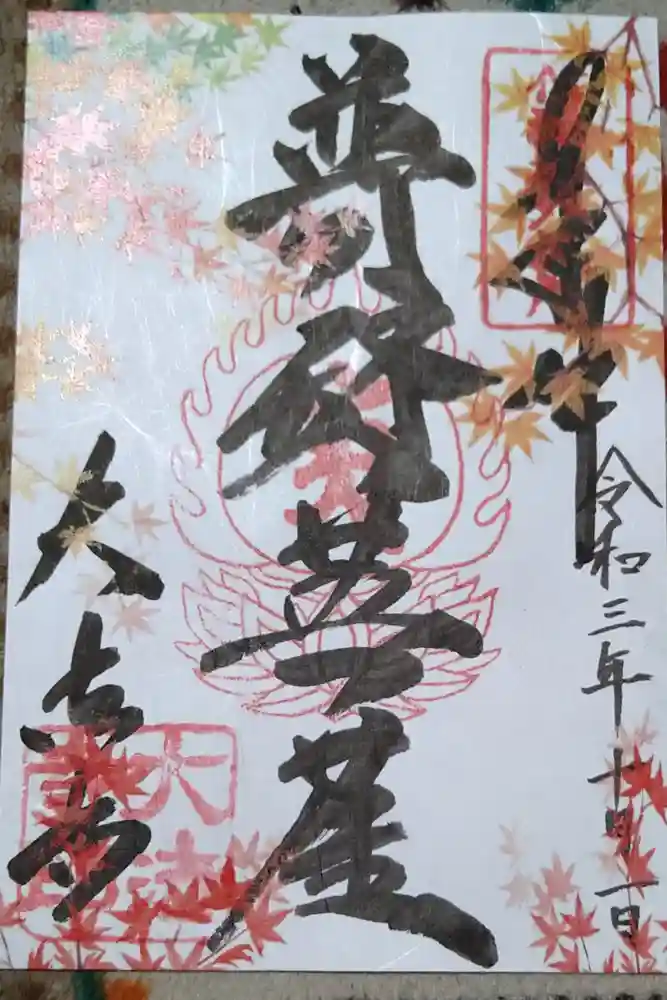 奉拝
令和三年十月一日
普賢菩薩
大法寺